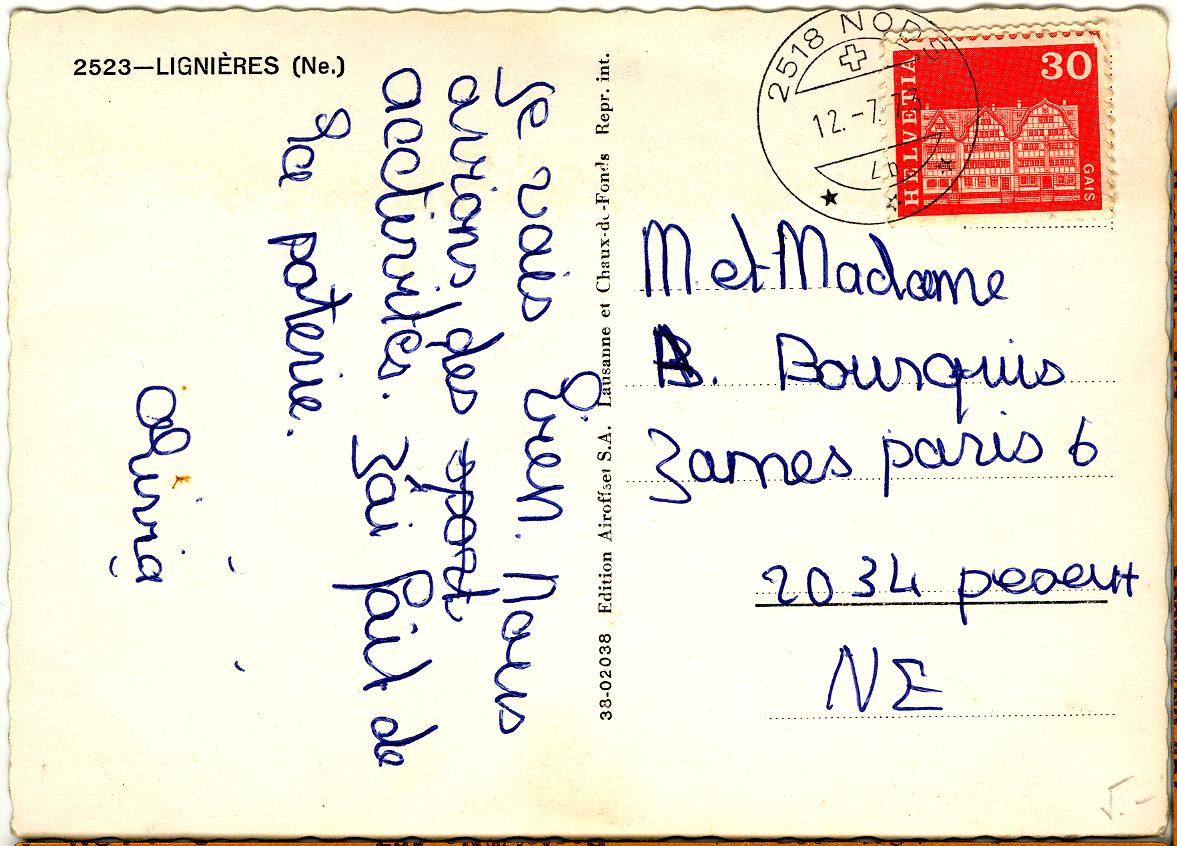 2523—LIGNIÈRES (Ne.)
Je vais bien. Nous
avions des sport
activités. J'ai fait de
la poterie.
Olivia
38-02038 Edition Airoffset S.A. Lausanne et Chaux-de-Fonds Repr. int.
2518 NODS
12.-7.73
HELVETIA
30
GAIS
M et Madame
B. Bourquis
Zames paris 6
2034 peseux
NE
5.-